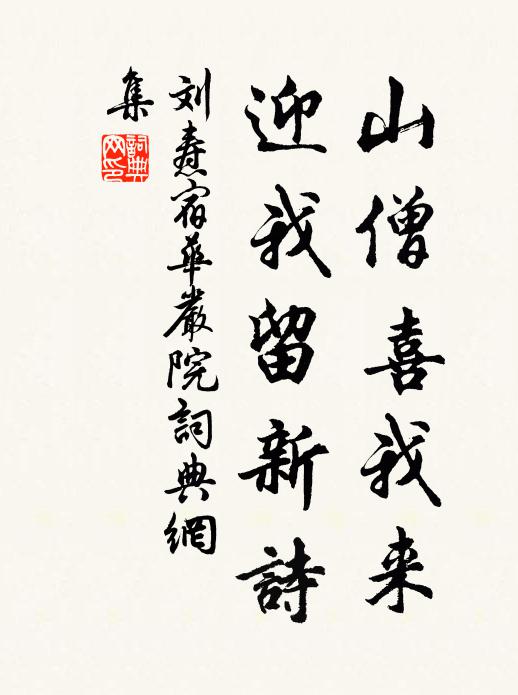 山僧喜我来
迎我留新詩
刘焘宿華嚴院詞典網
集
詞典網印